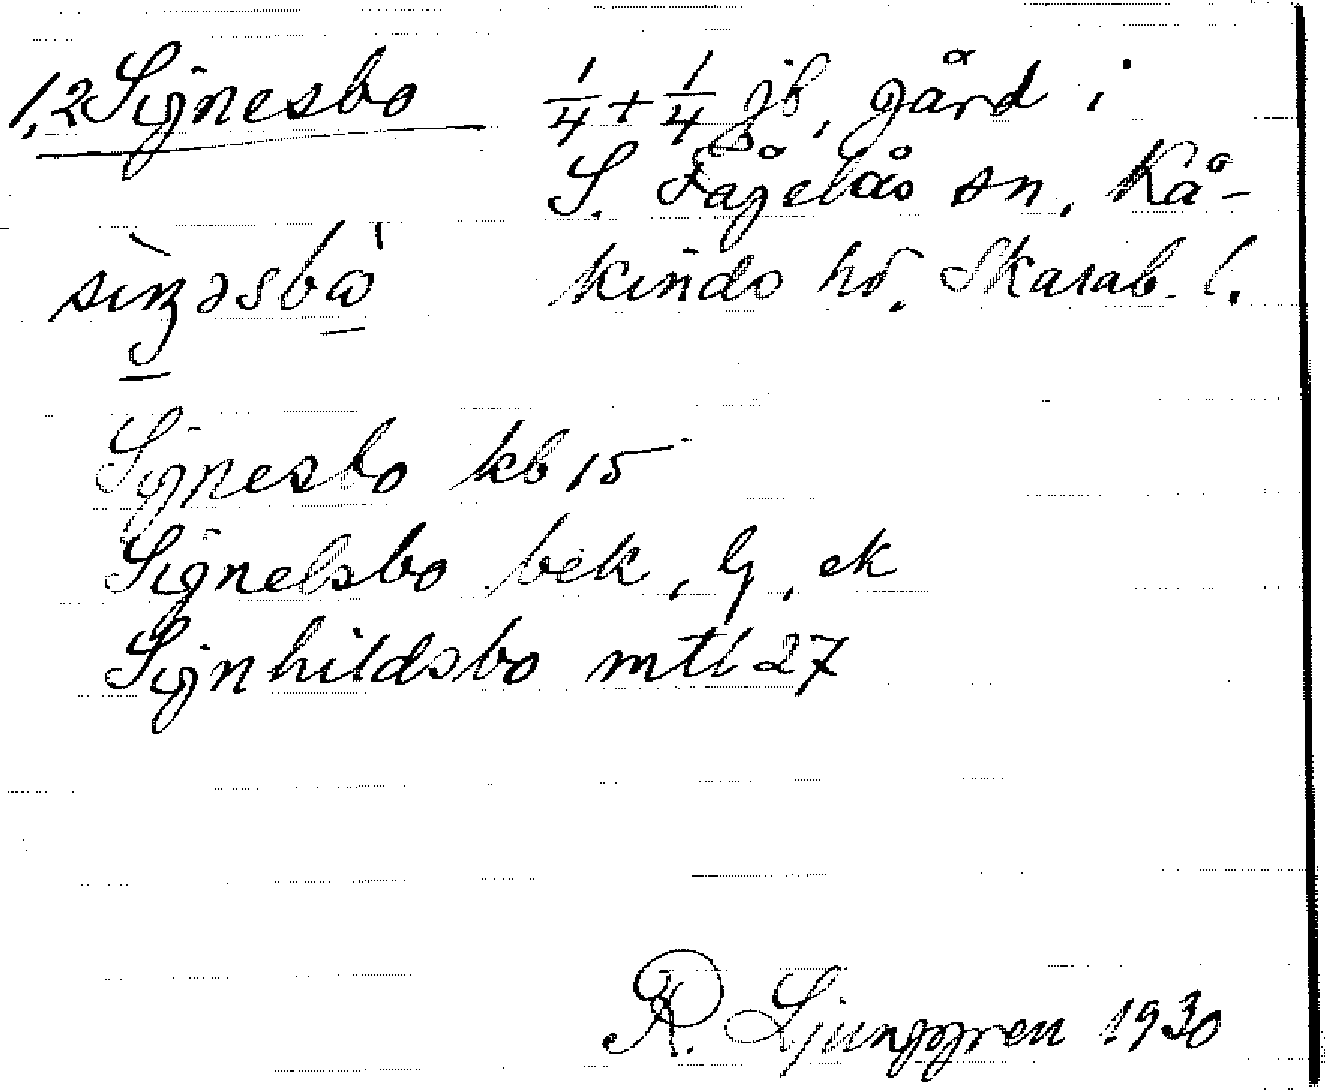 1,2 Signesbo 1/4 + 1/4 jb, gård i
S. Fågelås sn, Kå-
kinds hd. Skarab. l.
Signesbo kb 15
Signelsbo bek, G, ek
Signhildsbo mtl 27
R. Ljunggren 1930